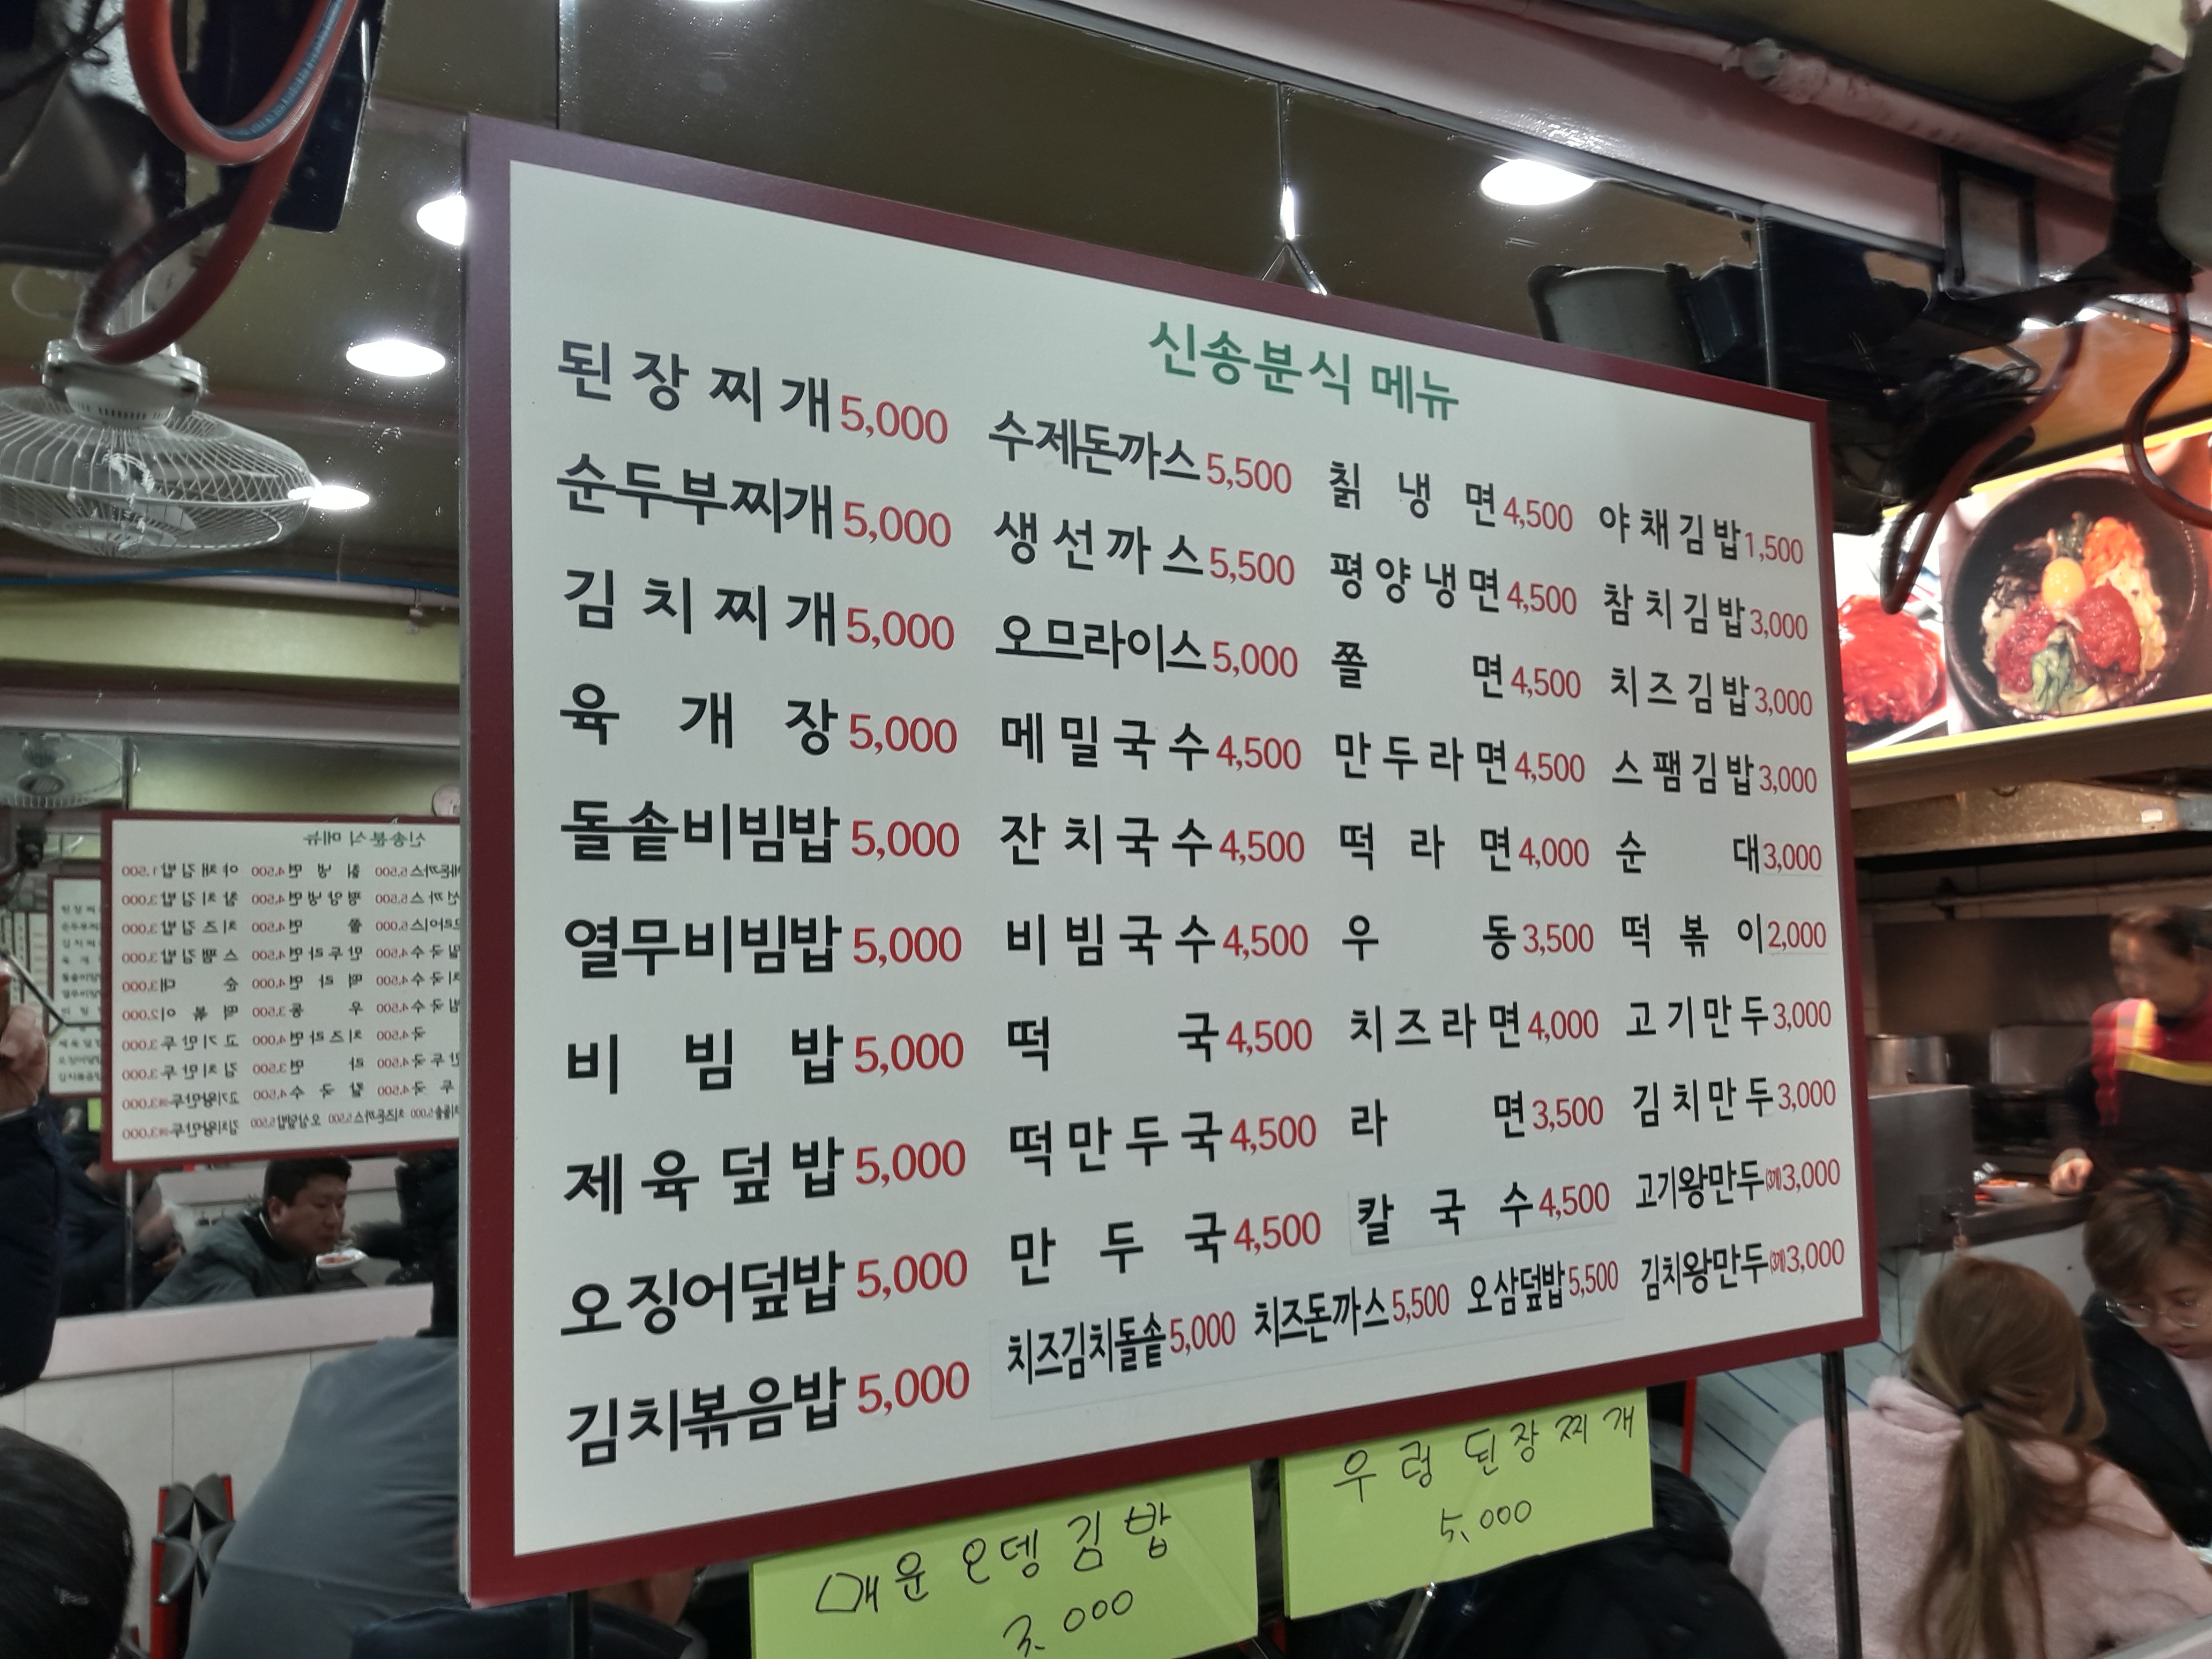 신송분식 메뉴
된장찌개 5,000
순두부찌개 5,000
김치찌개 5,000
육개장 5,000
돌솥비빔밥 5,000
열무비빔밥 5,000
비빔밥 5,000
제육덮밥 5,000
오징어덮밥 5,000
김치볶음밥 5,000
수제돈까스 5,500
생선까스 5,500
오므라이스 5,000
메밀국수 4,500
잔치국수 4,500
비빔국수 4,500
떡국 4,500
떡만두국 4,500
만두국 4,500
치즈김치돌솥 5,000
칡냉면 4,500
평양냉면 4,500
쫄면 4,500
만두라면 4,500
떡라면 4,000
우동 3,500
치즈라면 4,000
라면 3,500
칼국수 4,500
치즈돈까스 5,500
오삼덮밥 5,500
야채김밥 1,500
참치김밥 3,000
치즈김밥 3,000
스팸김밥 3,000
순대 3,000
떡볶이 2,000
고기만두 3,000
김치만두 3,000
고기왕만두 3,000
김치왕만두 3,000
매운오뎅김밥
3,000
우렁된장찌개
5,000